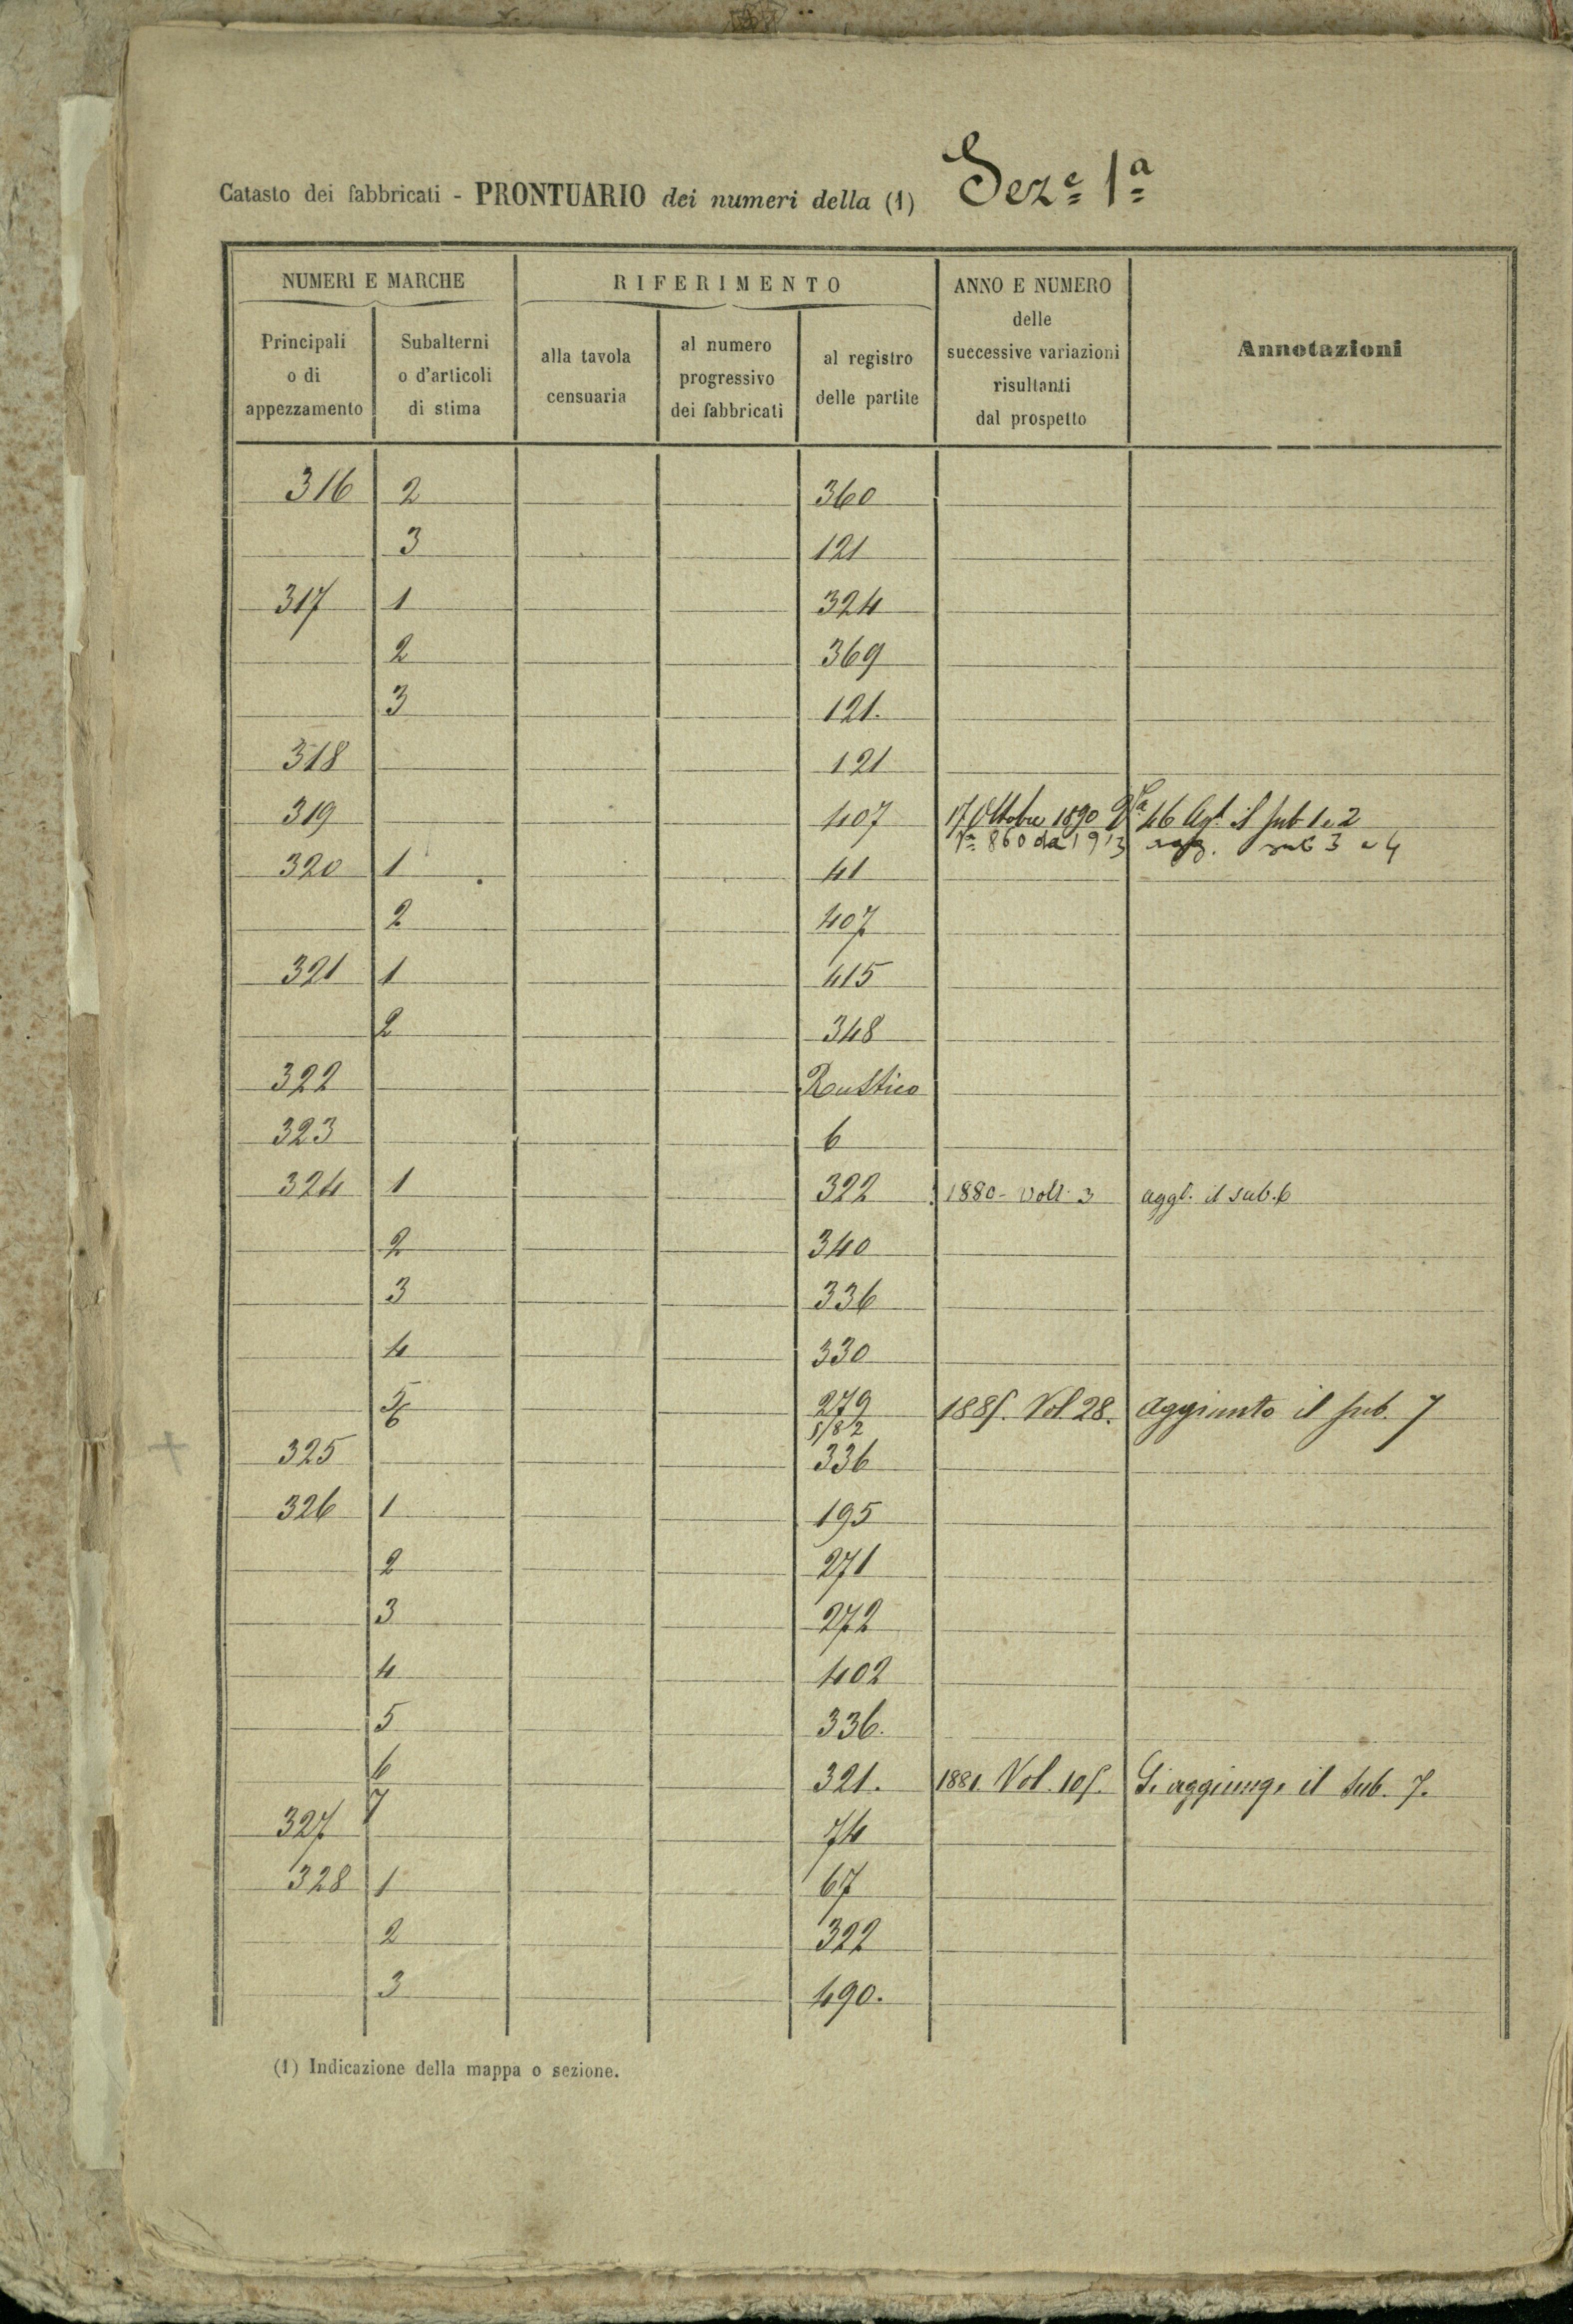 Catasto dei fabbricati - PRONTUARIO dei numeri della (1) Sez.e 1a
NUMERI E MARCHE
RIFERIMENTO
ANNO E NUMERO
delle
successive variazioni
risultanti
dal prospetto
Annotazioni
Principali
o di
appezzamento
Subalterni
o d'articoli
di stima
alla tavola
censuaria
al numero
progressivo
dei fabbricati
al registro
delle partite
316 2 360
3 121
317 1 324
2 369
3 121.
318 121
319 407 17 Ottobre 1890 46 Agt. il sub 1 e 2
860 da 1913 sub 3 e 4
320 1 41
2 407
321 1 415
2 348
322 Rustico
323 6
324 1 322 1880 - Voll 3 aggt. il sub. 6
2 340
3 336
4 330
5 279 Vol 28. aggiunto il sub. 7
6 5/82
325 336
326 1 195
2 271
3 272
4 402
5 336.
6 321. 1881 Vol. Si aggiunge il sub. 7.
7
327 74
328 1 67
2 322
3 490.
(1) Indicazione della mappa o sezione.